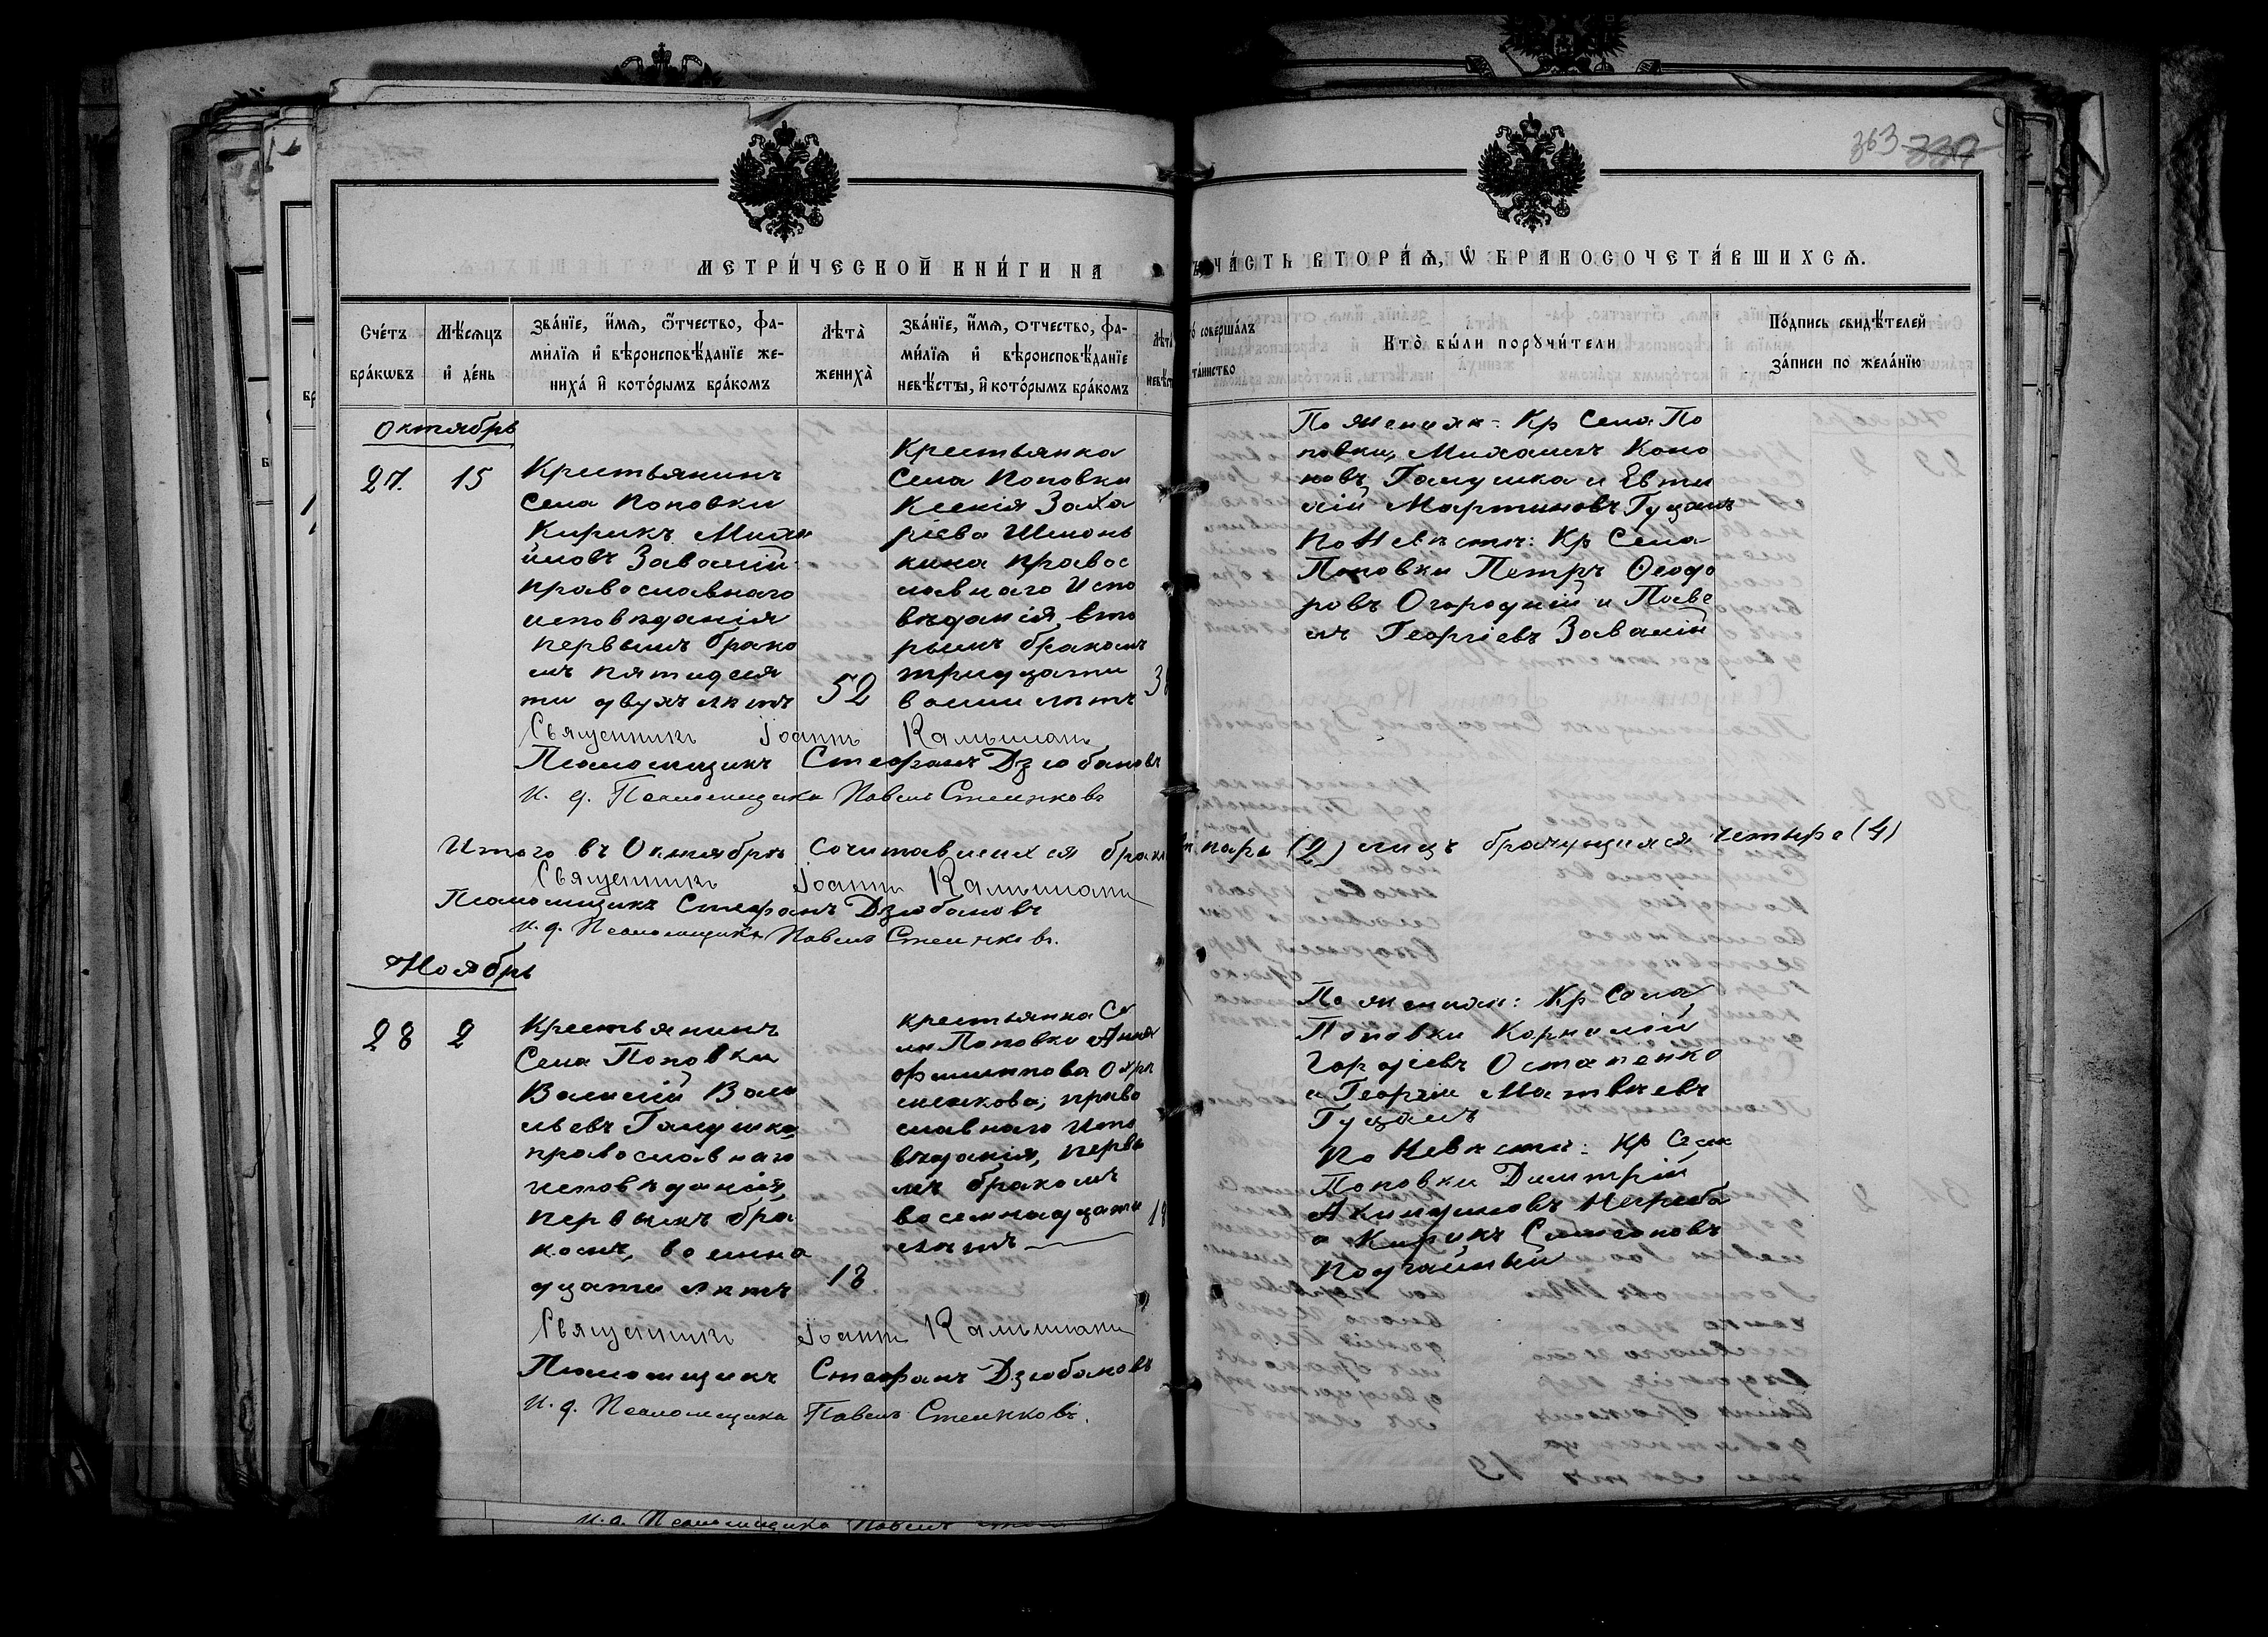 363 337
МЕТРИ́ЧЕСКОЙ КНИ́ГИ НА
ЧА́СТЬ ВТОРА́Ѧ, Ѡ БРАКОСОЧЕТА́ВШИХСѦ.
Сче́тъ бра́кѡвъ
Мѣ́сѧцъ и҆ де́нь
Зва́нїе, и҆́мѧ, ѻ҆́тчество, фа-
ми́лїѧ и҆ вѣроисповѣ́данїе же-
ниха̀ и҆ кото́рымъ бра́комъ
Лѣта̀ жениха̀
Зва́нїе, и҆́мѧ, ѻтчество, фа-
ми́лїѧ и҆ вѣроисповѣ́данїе
невѣ́сты, и҆ кото́рымъ бра́комъ
соверша́лъ
та́инство
Кто̀ бы́ли порꙋчи́тели
По́дпись свидѣ́телей
за́писи по жела́нїю
Октябрь
27. 15
Крестьянинъ
Села Поповки
Кирикъ Михаи
иловъ Завалій
православнаго
исповѣданія
первымъ брако
мъ пятидеся
ти двухъ лѣтъ
52
Крестьянка
Села Поповки
Ксенія Заха
ріева Шмонь
кина правос
лавнаго Испо
вѣданія, вто
рымъ бракомъ
тридцати
восми лѣтъ
По женихѣ: Кр Села По
повки, Михаилъ Коно
новъ Галушка и Евти
хій Мартиновъ Гуцалъ
По Невѣстѣ: Кр Села
Поповки Петръ Ѳеодо
ровъ Огородній и Паве
лъ Георгіевъ Завалій
Священникъ Іоаннъ
Псаломщикъ Стефанъ Дзюбановъ
И. д. Псаломщика Павелъ
Итого въ Октябрѣ сочитавшихся парь (2) лицъ брачущихся четыре (4)
Священникъ Іоаннъ
Псаломщикъ Стефанъ Дзюбановъ
И. д. Псаломщика Павелъ
Ноябрь
28 2
Крестьянинъ
Села Поповки
Василій Васи
льевъ Галушка,
православнаго
исповѣданія,
первымъ бра
комъ, восмна
дцати лѣтъ
18
крестьянка Се
ла Поповки Анна
Филиппова Охри
менкова, право
славнаго Испо
вѣданія, первы
мъ бракомъ
восемнадцати
лѣтъ
18
По женихѣ: Кр Села
Поповки Корнилій
Гордіевъ Остапенко
и Георгій Матвѣевъ
Гуцалъ
По Невѣстѣ: Кр Села
Поповки Димитрій
Акиндиновъ Негреба
и Кирикъ Самсоновъ
Подгайный
Священникъ Іоаннъ
Псаломщикъ Стефанъ Дзюбановъ
И. д. Псаломщика Павелъ
И. д. Псаломщика Павелъ